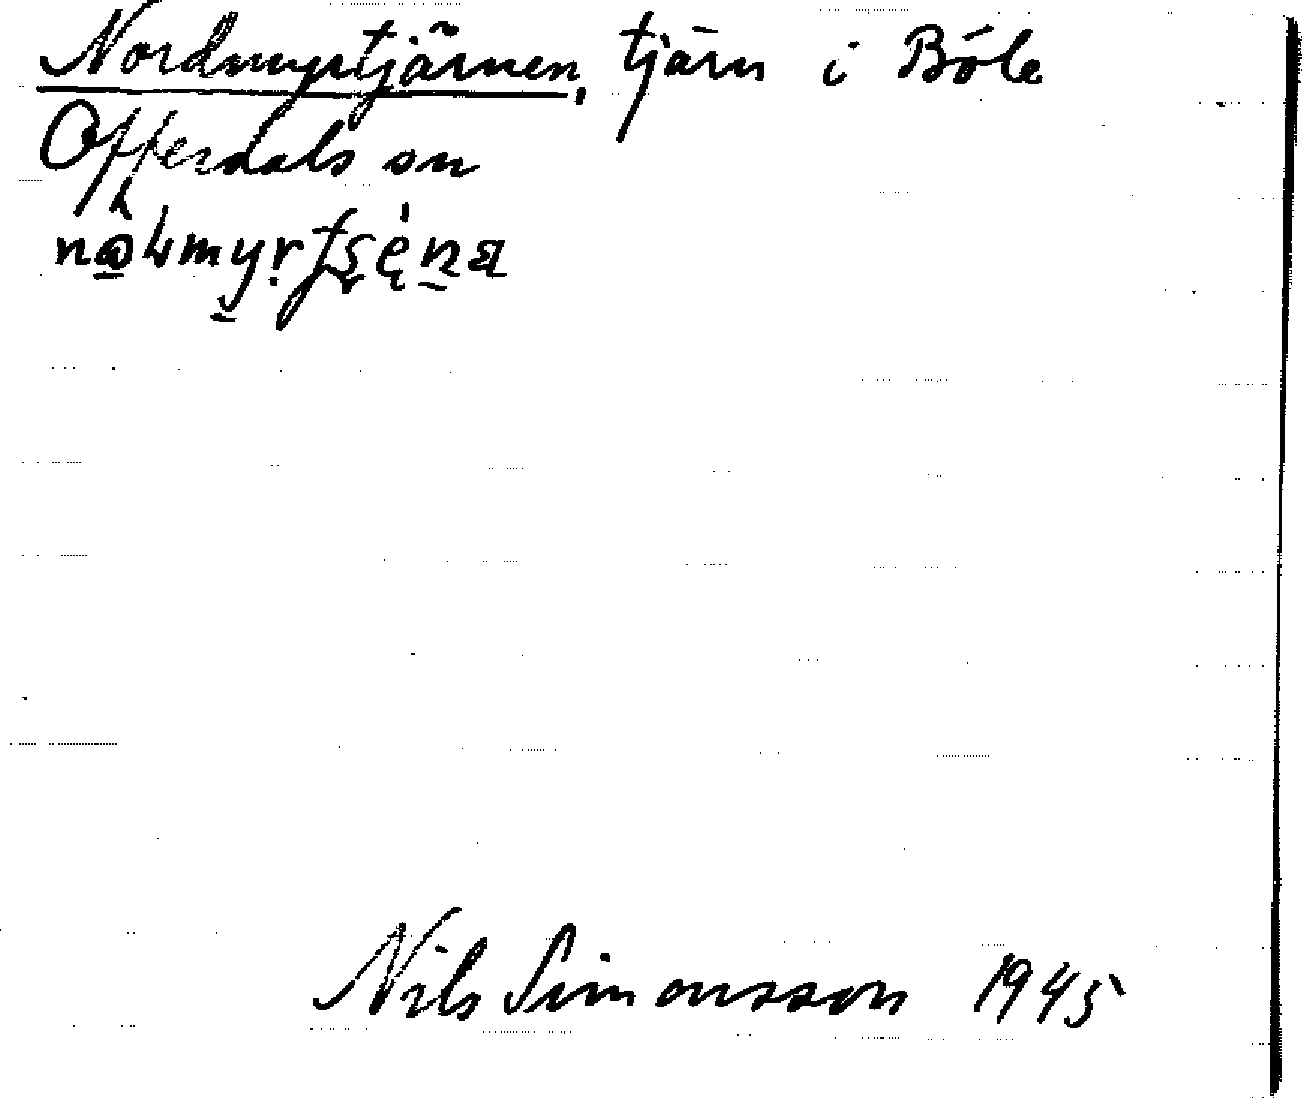 Nordmyrtjärnen, tjärn i Böle
Offerdals sn
Nils Simonsson 1945